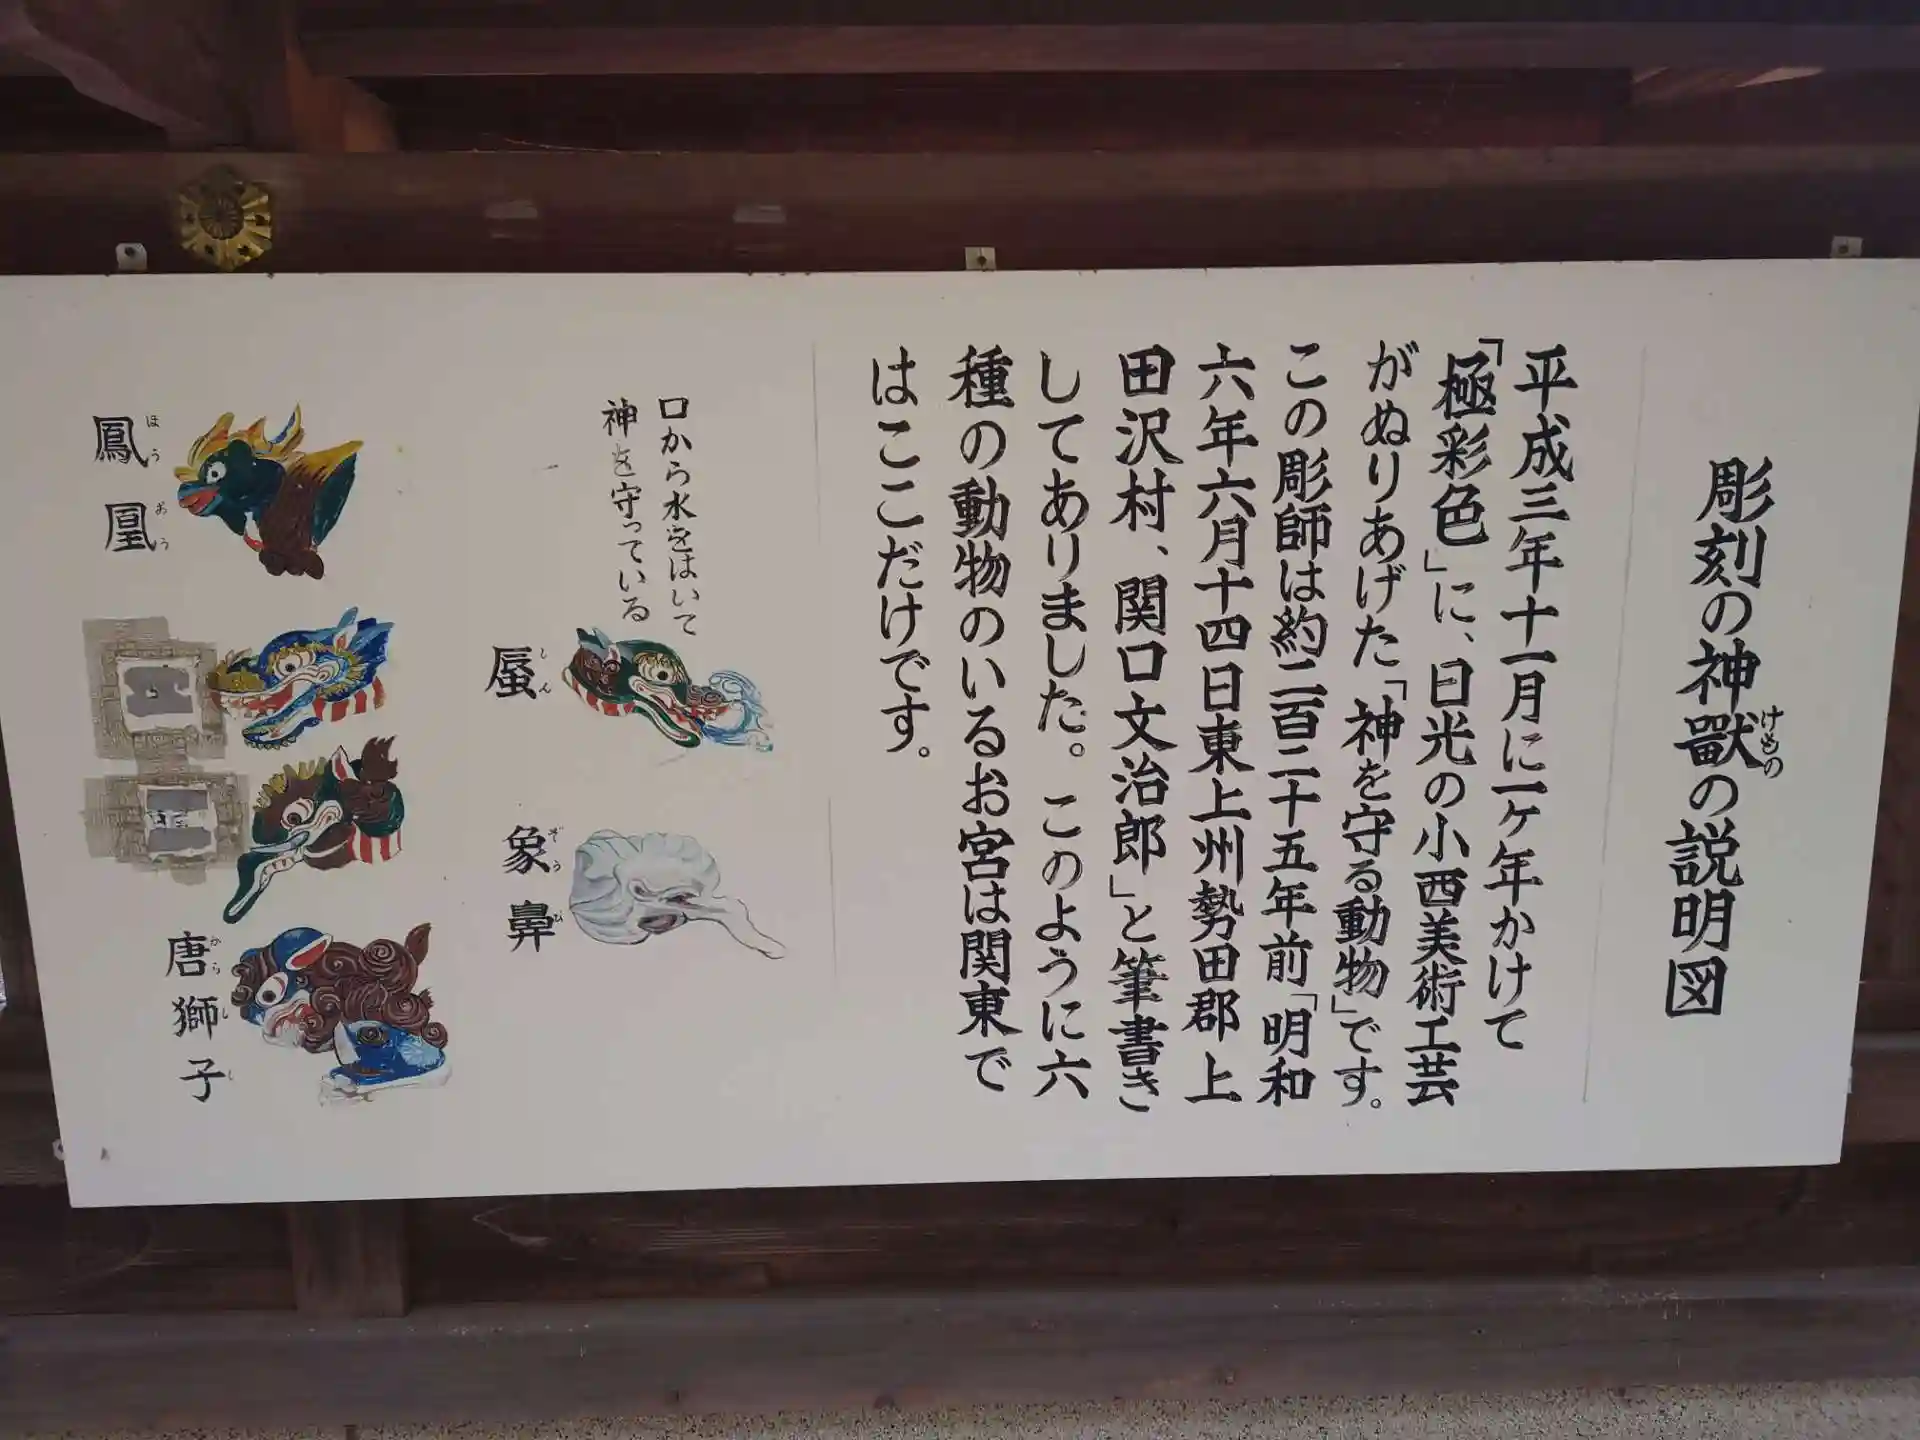 彫刻の神獸の説明図
けもの
平成三年十一月に一ヶ年かけて
「極彩色」に、日光の小西美術工芸
がぬりあげた「神を守る動物」です。
この彫師は約二百二十五年前「明和
六年六月十四日東上州勢田郡上
田沢村、関口文治郎」と筆書き
してありました。このように六
種の動物のいるお宮は関東で
はここだけです。
口から水をはいて
神を守っている
蜃
しん
象鼻
ぞうび
鳳凰
ほうおう
唐獅子
からしし